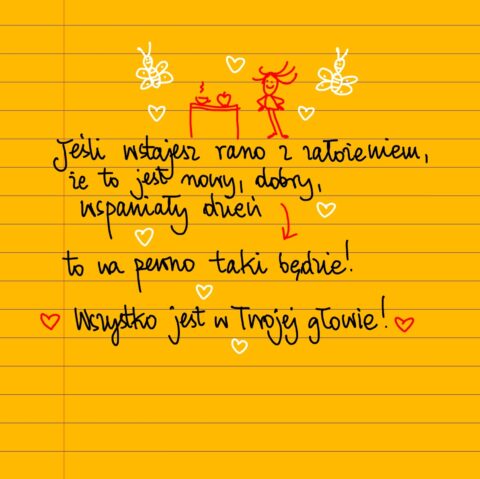 Jeśli wstajesz rano z założeniem,
że to jest nowy, dobry,
wspaniały dzień
to na pewno taki będzie!
Wszystko jest w Twojej głowie!